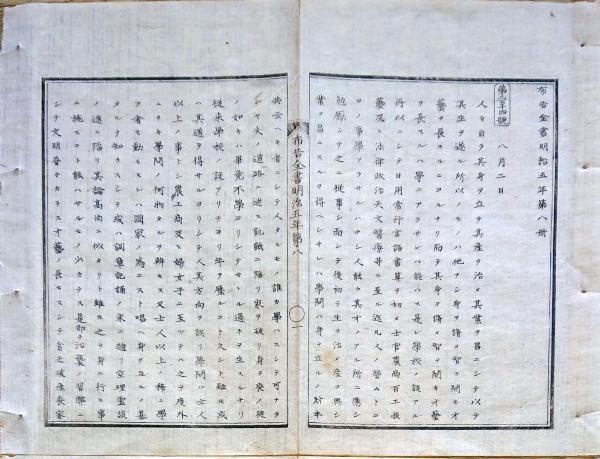 布告全書明治五年第八冊
第二百十四號
八月二日
人々自ラ其身ヲ立テ其産ヲ治メ其業ヲ昌ニシテ以テ
其生ヲ遂ル所以ノモノハ他ナシ身ヲ脩メ智ヲ開キ才
藝ヲ長スルニヨルナリ而テ其身ヲ脩メ智ヲ開キ才藝
ヲ長スルハ學ニアラサレハ能ハス是レ學校ノ設アル
所以ニシテ日用常行言語書算ヲ初メ士官農商百工技
藝及ヒ法律政治天文醫療等ニ至ル迄凡人ノ營ムトコ
ロノ事學アラサルハナシ人能ク其才ノアル所ニ應シ
勉勵シテ之ニ從事シ而シテ後初テ生ヲ治メ産ヲ興シ
業ヲ昌ニスルヲ得ヘシサレハ學問ハ身ヲ立ルノ財本
布告全書明治五年第八
一
共云ヘキ者ニシテ人タルモノ誰カ學ハスシテ可ナラ
ンヤ夫ノ道路ニ迷ヒ飢餓ニ陥リ家ヲ破リ身ヲ喪ノ徒
ノ如キハ畢竟不學ヨリシテカヽル過チヲ生スルナリ
從來學校ノ設アリテヨリ年ヲ歴ルコト久シト雖モ或
ハ其道ヲ得サルヨリシテ人其方向ヲ誤リ學問ハ士人
以上ノ事トシ農工商及ヒ婦女子ニ至ツテハ之ヲ度外
ニヲキ學問ノ何物タルヲ辨セス又士人以上ノ稀ニ學
フ者モ動モスレハ國家ノ爲ニスト唱ヘ身ヲ立ルノ基
タルヲ知ラスシテ或ハ詞章記誦ノ末ニ趨リ空理虚談
ノ途ニ陥リ其論高尚ニ似タリト雖モ之ヲ身ニ行ヒ事
ニ施スコト能ハサルモノ少カラス是即チ沿襲ノ習弊ニ
シテ文明普子カラス才藝ノ長セスシテ貧乏破産喪家